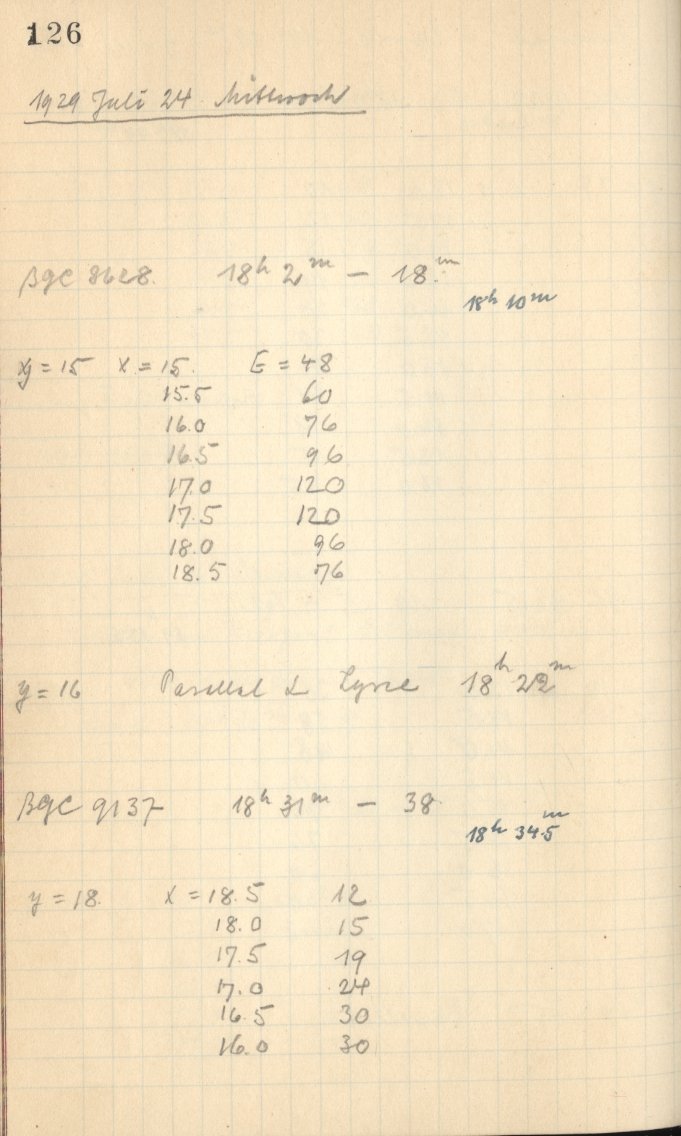 126
1929 Juli 24 Mittwoch
βGC 8628. 18h 2m – 18.m
18h 10m
y = 15 x = 15. E = 48
15.5 60
16.0 76
16.5 96
17.0 120
17.5 120
18.0 96
18.5 76
y = 16 Parallel α Lyrae 18h 22m
βGC 9137 18h 31m – 38
18h 34.5m
y = 18. x = 18.5 12
18.0 15
17.5 19
17.0 24
16.5 30
16.0 30